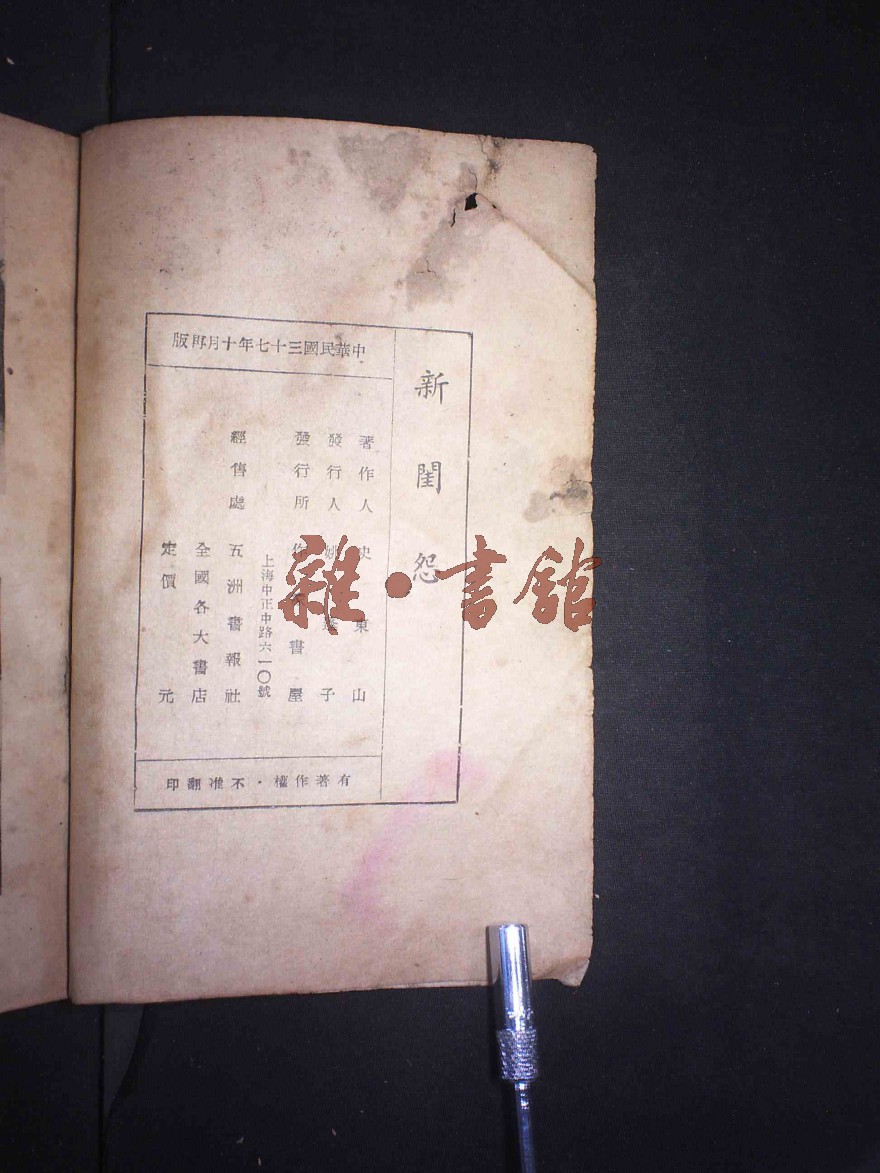 新閨怨
中華民國三十七年十月再版
著作人 史東山
發行人 姚 子
發行所 作 書屋
上海中正中路六一〇號
經售處 五洲書報社
全國各大書店
定價 元
有著作權・不准翻印
雜・書館